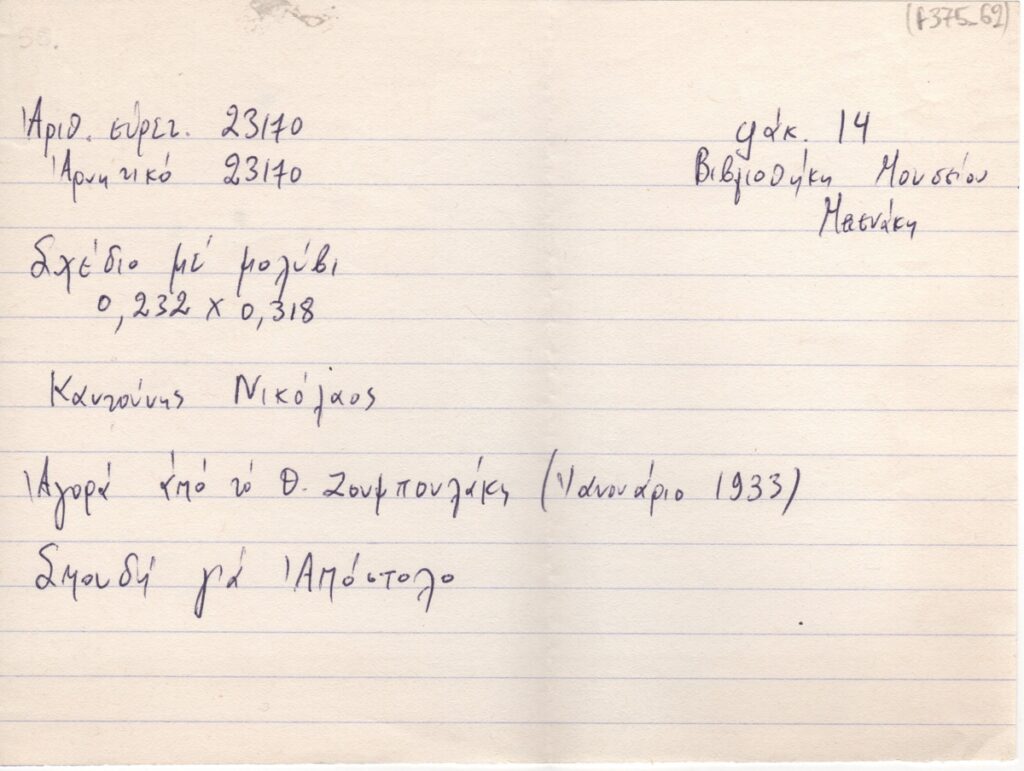 (F375_62)
Ἀριθ. εὑρετ. 23170
φάκ. 14
Ἀρνητικό 23170
Βιβλιοθήκη Μουσείου
Μπενάκη
Σχέδιο μέ μολύβι
0,232 x 0,318
Καντούνης Νικόλαος
Ἀγορά ἀπό τό Θ. Ζουμπουλάκη (Ἰανουάριο 1933)
Σπουδή γιά Ἀπόστολο